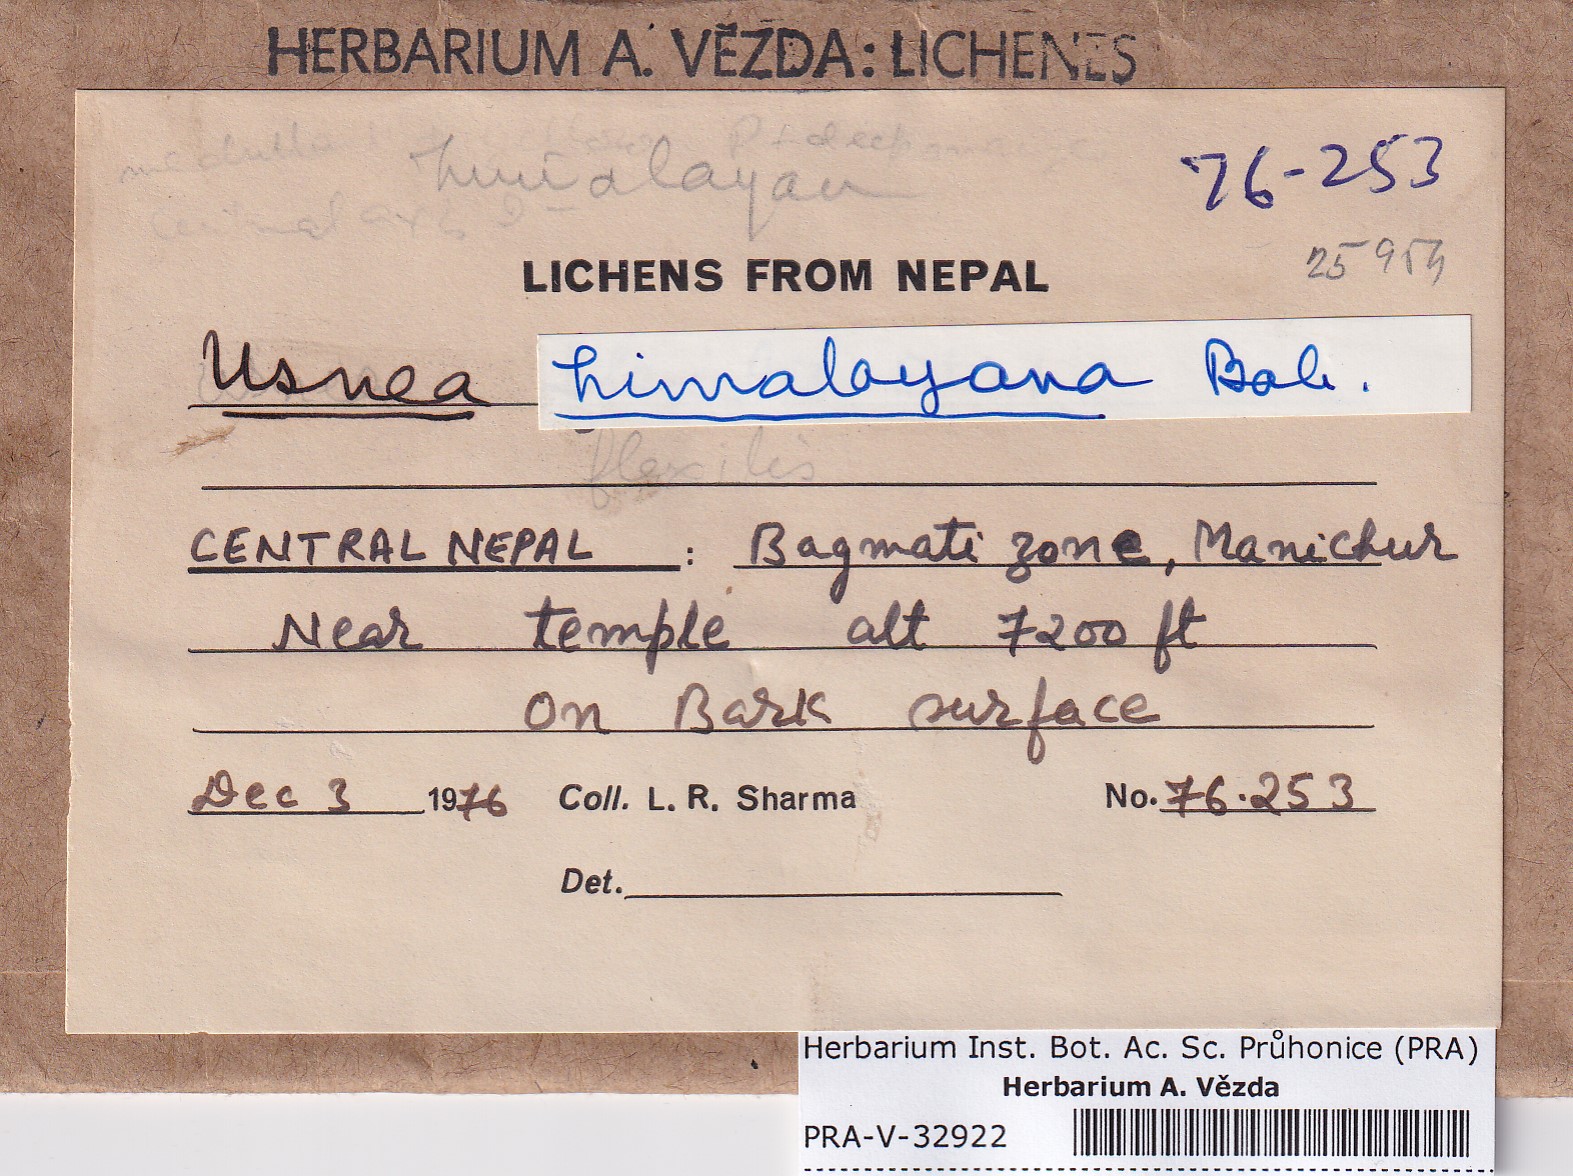 HERBARIUM A. VĚZDA: LICHENES
himalayan
76-253
central axis
LICHENS FROM NEPAL
25954
Usnea himalayana Bab.
flexilis
CENTRAL NEPAL : Bagmati zone, Manichur
Near temple alt 7200 ft
On Bark surface
Dec 3 1976 Coll. L. R. Sharma No. 76.253
Det.
Herbarium Inst. Bot. Ac. Sc. Průhonice (PRA)
Herbarium A. Vězda
PRA-V-32922